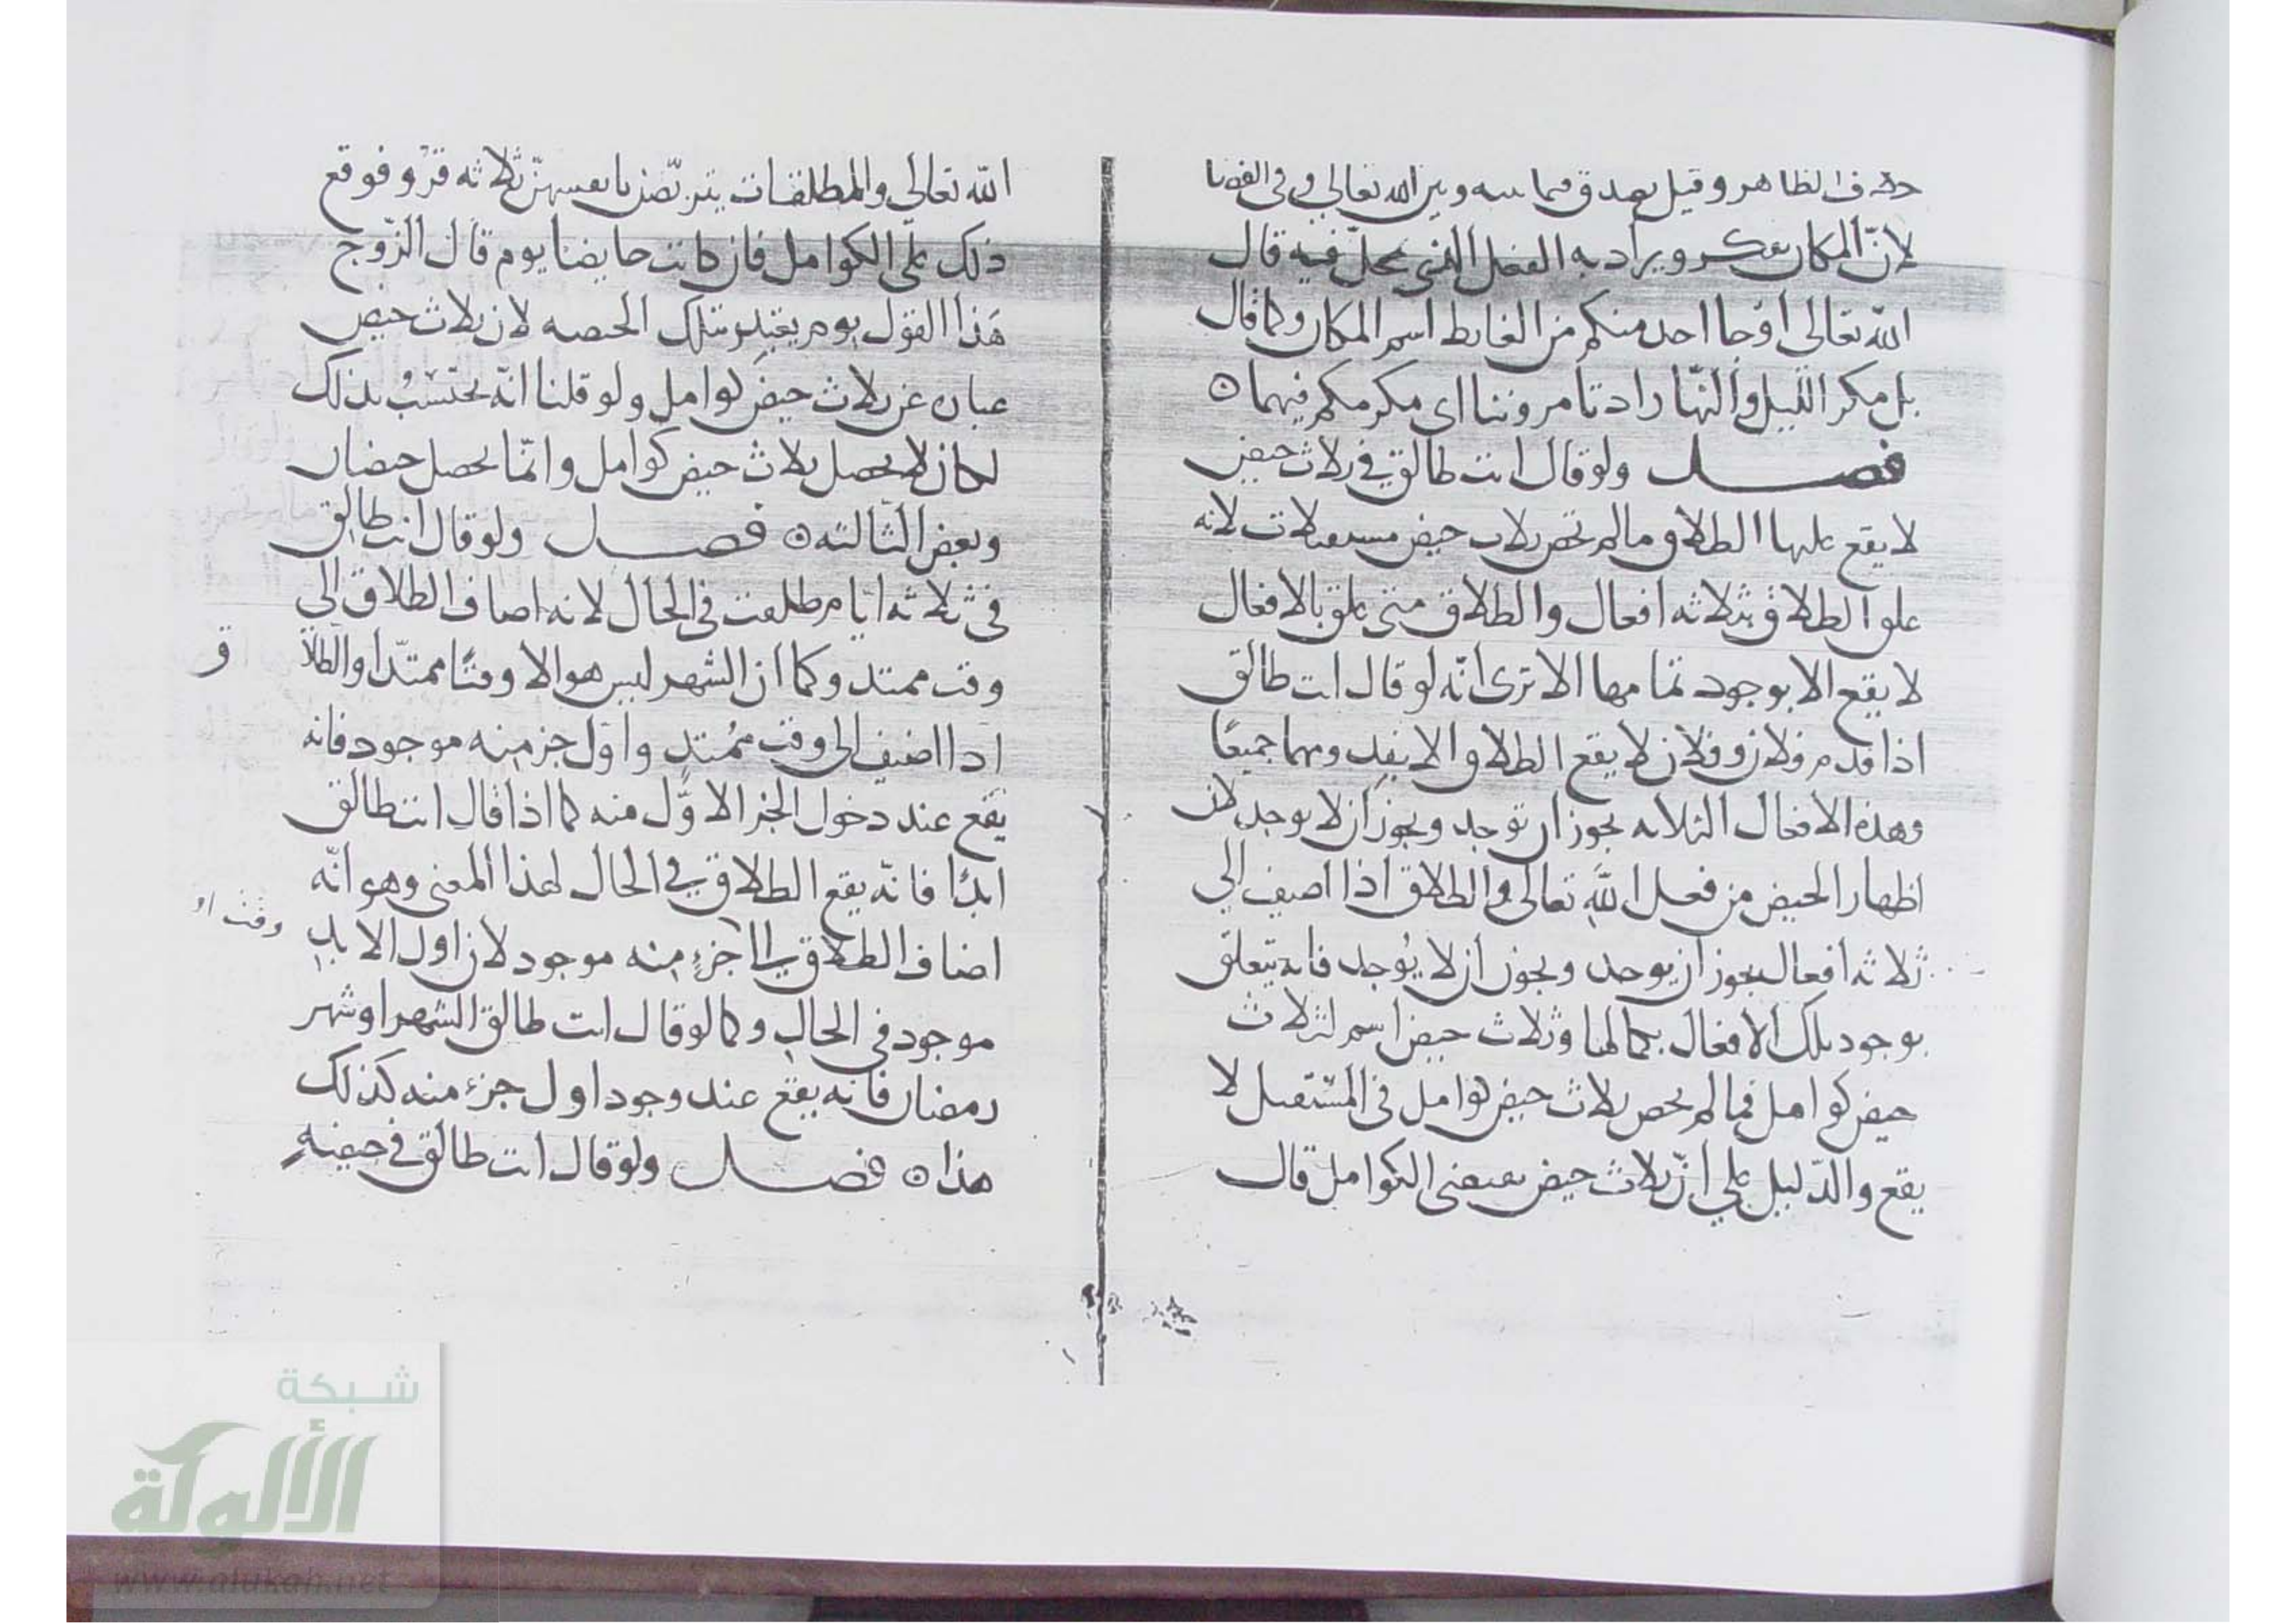 في الظاهر وقيل يصدق فيما بينه وبين الله تعالى وفي القضا
لانّ المكان يذكر ويراد به الفعل الذي يحلّ فيه قال
الله تعالى أوجا احد منكم من الغايط اسم المكان وكما قال
بل مكر اللّيل والنّهار اذ تامروننا اي مكركم فيهما ه
فصل ولو قال انت طالق في ثلاث حيض
لا يقع عليها الطلاق ما لم تحض ثلاث حيض مستقبلات لانه
علق الطلاق بثلاثه افعال والطلاق متى علق بالافعال
لا يقع الا بوجود تمامها الا ترى انّه لو قال انت طالق
اذا قدم فلان وفلان لا يقع الطلاق الا بقدومهما جميعًا
وهذه الافعال الثلاثه يجوز ان توجد ويجوز ان لا توجد لان
اظهار الحيض من فعل الله تعالى والطلاق اذا اضيف الي
ثلاثه افعال يجوز ان يوجد ويجوز ان لا يُوجد فانه يتعلق
بوجود تلك الافعال بكمالها وثلاث حيض اسم لثلاث
حيض كوامل فما لم تحض ثلاث حيض كوامل في المستقبل لا
يقع والدّليل علي انّ ثلاث حيض يقتضي الكوامل قال
الله تعالى والمطلقات يتربّصن بانفسهنّ ثلاثه قرُو فوقع
ذلك على الكوامل فان كانت حايضا يوم قال الزّوج
هَذا القول لم يعتد بتلك الحيضه لان ثلاث حيض
عبارة عن ثلاث حيض كوامل ولو قلنا انّه يحتسبُ بذلك
لكان لا يحصل ثلاث حيض كوامل وانّما يحصل حيضتان
وبعض الثالثه ه فصل ولو قال انت طالق
في ثلاثه ايّام طلقت في الحال لانه اضاف الطلاق الي
وقت ممتد وكما ان الشهر ليس هو الا وقتًا ممتدّا والطلا
ق
اذا اضيف الى وقت مُمتدٍ واوّل جز منه موجود فانه
يقع عند دخول الجز الاوّل منه كما اذا قال انت طالق
ابدًا فانّه يقع الطلاق في الحال لهذا المعنى وهو انّه
اضاف الطلاق الى جزءٍ منه موجود لان اول الابد
موجود في الحال وكما لو قال انت طالق الشهر او شهر
رمضان فانه يقع عند وجود اول جزء منه كذلك
هذا ه فصل ولو قال انت طالق في حيضهٍ
شبكة
الألوكة
www.alukah.net